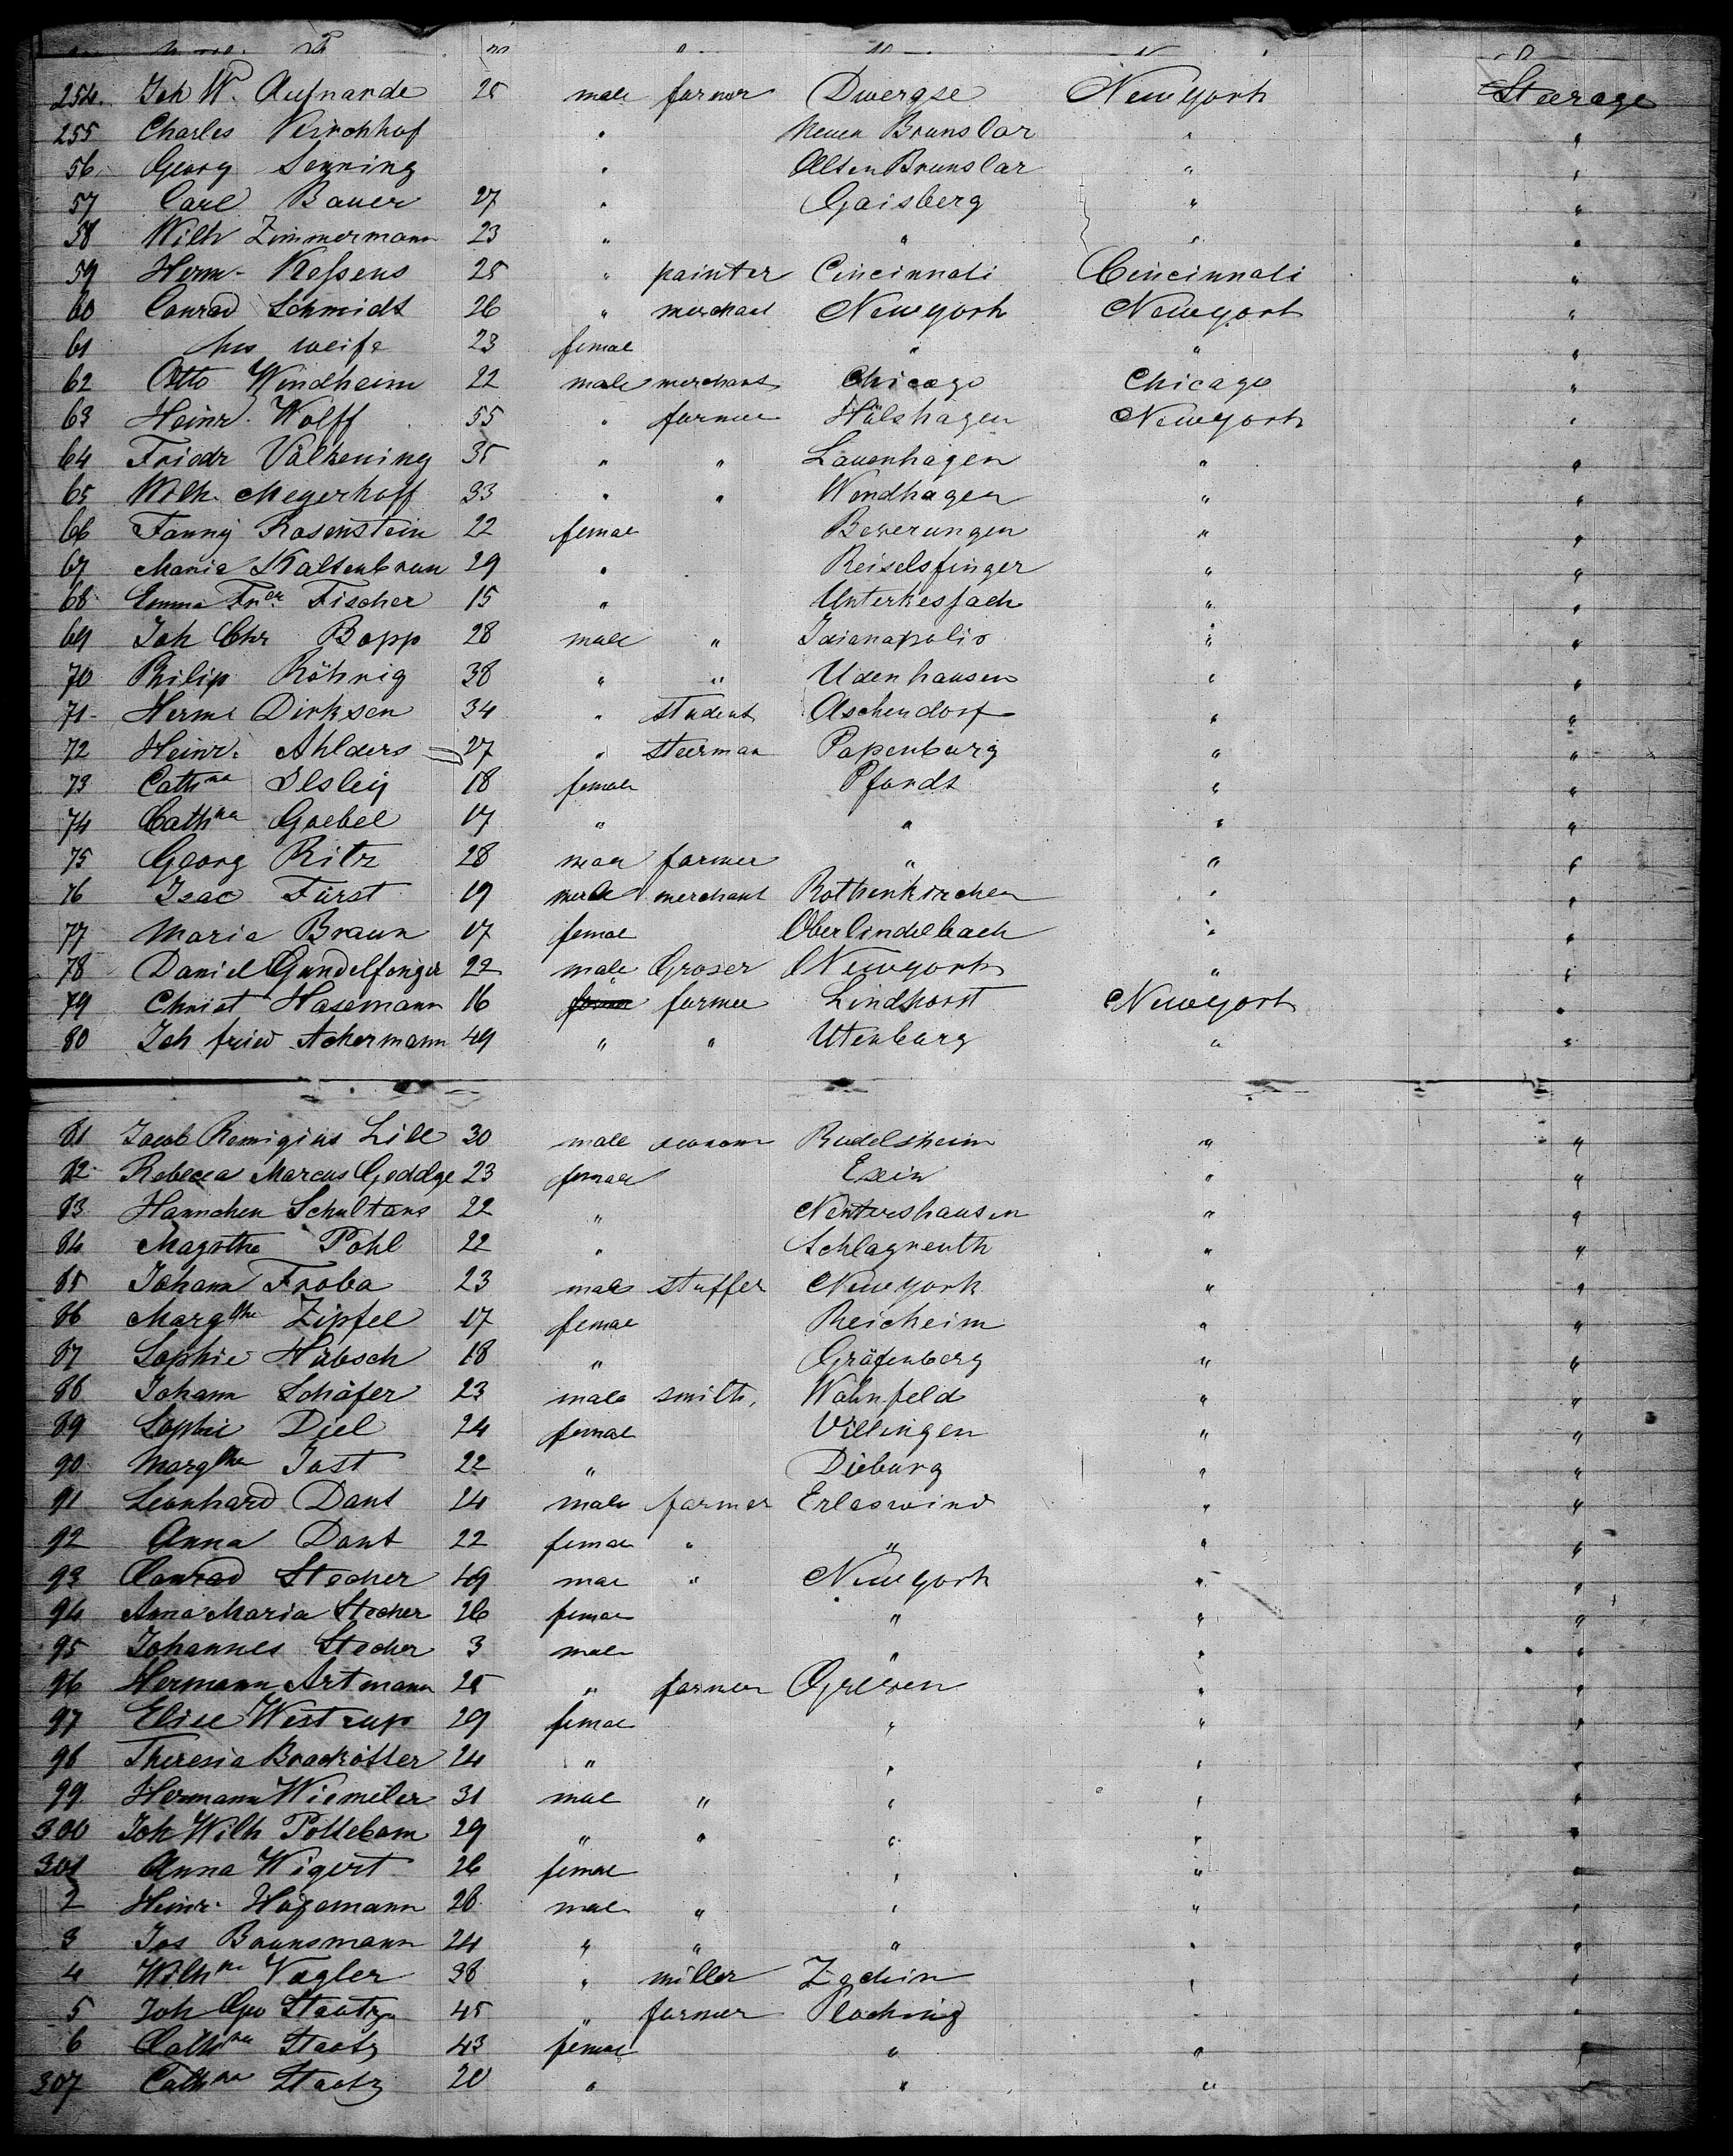 254. Joh W. Aufnarde 25 male farmer Dwergse Newyork Steerage
255 Charles Kirchhof " Neuen Brunslar " "
56 Georg Senning " Alten Brunslar " "
57 Carl Bauer 27 " Gaisberg " "
58 Wilh Zimmermann 23 " " " "
59 Herm. Kessens 25 " painter Cincinnati Cincinnati "
60 Conrad Schmidt 26 " merchant Newyork Newyork "
61 his weife 23 femal " " "
62 Otto Windheim 22 male merchant Chicago Chicago "
63 Heinr. Wolff 55 " farmer Hülshagen Newyork "
64 Friedr Válkening 35 " " Lauenhagen " "
65 Wilh. Megerhoff 33 " " Wendhagen " "
66 Fanny Rosenstein 22 femal Beverungen " "
67 Maria Kaltenbrun 29 " Reiselsfinger " "
68 Emma Fr Fischer 15 " Unterkessach " "
69 Joh Chr Bopp 28 male " Idianapolis " "
70 Philip Röhrig 38 " " Udenhausen " "
71 Herm. Dirksen 34 " student Aschendorf " "
72 Heinr. Ahlders 27 " steerman Papenburg " "
73 Cathna Ilsley 18 female Pfordt " "
74 Cathna Goebel 17 " " " "
75 Georg Ritz 28 mal farmer " " "
76 Isac Fürst 19 male merchant Rothenkirchen " "
77 Maria Braun 17 femal Oberlindelbach " "
78 Daniel Gundelfinger 22 male Groser Newyork " "
79 Christ Hasemann 16 farmer Lindhorst Newyork "
80 Joh fried Ackermann 49 " " Utenburg " "
81 Jacob Remigius Lill 30 male Rudelsheim " "
82 Rebecca Marcus Geddge 23 femal Exin " "
83 Hannchen Schultans 22 " Nentershausen " "
84 Magothe Pohl 22 " Schlagreuth " "
85 Johann Froba 23 male stuffer Newyork " "
86 Margthe Zipfel 17 femal Reicheim " "
87 Sophie Hübsch 18 " Gräfenberg " "
88 Johann Schäfer 23 male smith, Wohnfeld " "
89 Sophie Diel 24 femal Villingen " "
90 Margthe Jost 22 " Dieburg " "
91 Leonhard Dant 24 male farmer Erlaswind " "
92 Anna Dant 22 femal " " " "
93 Conrad Stecher 49 mal " Newyork " "
94 Anna Maria Stecher 26 femal " " "
95 Johannes Stecher 3 male " " "
96 Hermann Artmann 25 " farmer Greven " "
97 Elise Westrup 29 femal " " "
98 Theresia Brackötter 24 " " " "
99 Hermann Wiemeler 31 mal " " " "
300 Joh Wilh Pottebom 29 " " " " "
301 Anna Wigert 26 femal " " "
2 Heinr. Hagemann 28 mal " " " "
3 Jos Baunsmann 24 " " " " "
4 Wilhm Vogler 38 " miller Zachin " "
5 Joh Geo Staatz 45 " farmer Ploching " "
6 Cathna Staatz 43 femal " " "
307 Cathna Staatz 20 " " "